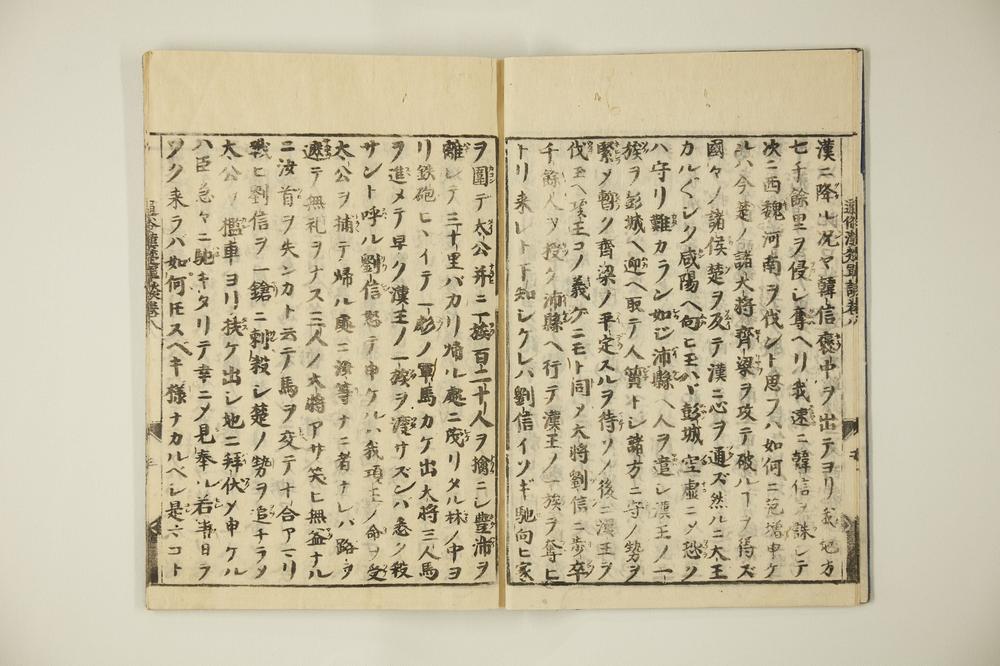 漢ニ降ル况ヤ韓信褒中ヲ出テヨリ我地方
七千餘里ヲ侵シ奪ヘリ我速ニ韓信ヲ誅シテ
次ニ西魏河南ヲ伐ント思フハ如何ニ范増申ケ
ルハ今楚ノ諸大将齊梁ヲ攻テ破ルヿヲ得ズ
國々ノ諸侯楚ヲ反テ漢ニ心ヲ通ズ然ルニ大王
カル〲シク咸陽ヘ向ヒ玉ハヾ彭城空虚ニメ恐ク
ハ守リ難カラン如ジ沛縣ヘ人ヲ遣シ漢王ノ一
族ヲ彭城ヘ迎ヘ取テ人質トシ諸方ニ守ノ勢ヲ
緊メ暫ク齊梁ノ平定スルヲ待ソノ後ニ漢王ヲ
伐玉ヘ項王コノ義ゲニモト同メ大将劉信ニ歩卒
千餘人ヲ授ケ沛縣ヘ行テ漢王ノ一族ヲ奪ヒ
トリ来レト下知シケレハ劉信イソギ馳向ヒ家
ヲ圍デ太公并ニ一族百二十人ヲ擒ニシ豊沛ヲ
離レテ三十里バカリ帰ル處ニ茂リタル林ノ中ヨ
リ鉄砲ヒヾイテ一彪ノ軍馬カケ出大将三人馬
ヲ進メテ早ク漢王ノ一族ヲ渡サズンバ悉ク殺
サント呼ル劉信怒テ申ケルハ我項王ノ命ヲ受
太公ヲ捕テ帰ル處ニ汝等ナニ者ナレバ路ヲ
遮テ無礼ヲナス三人ノ大将アザ笑ヒ無益ナル
ニ汝首ヲ失ンカト云テ馬ヲ交テ十合アマリ
戦ヒ劉信ヲ一鎗ニ刺殺シ楚ノ勢ヲ追チラメ
太公ヲ檻車ヨリ扶ケ出シ地ニ拜伏メ申ケル
ハ臣急々ニ馳キタリテ幸ニメ見奉ル若半日ヲ
ソク来ラバ如何トモスベキ様ナカルベシ是六コト
通俗漢楚軍談巻八
通俗漢楚軍談巻八